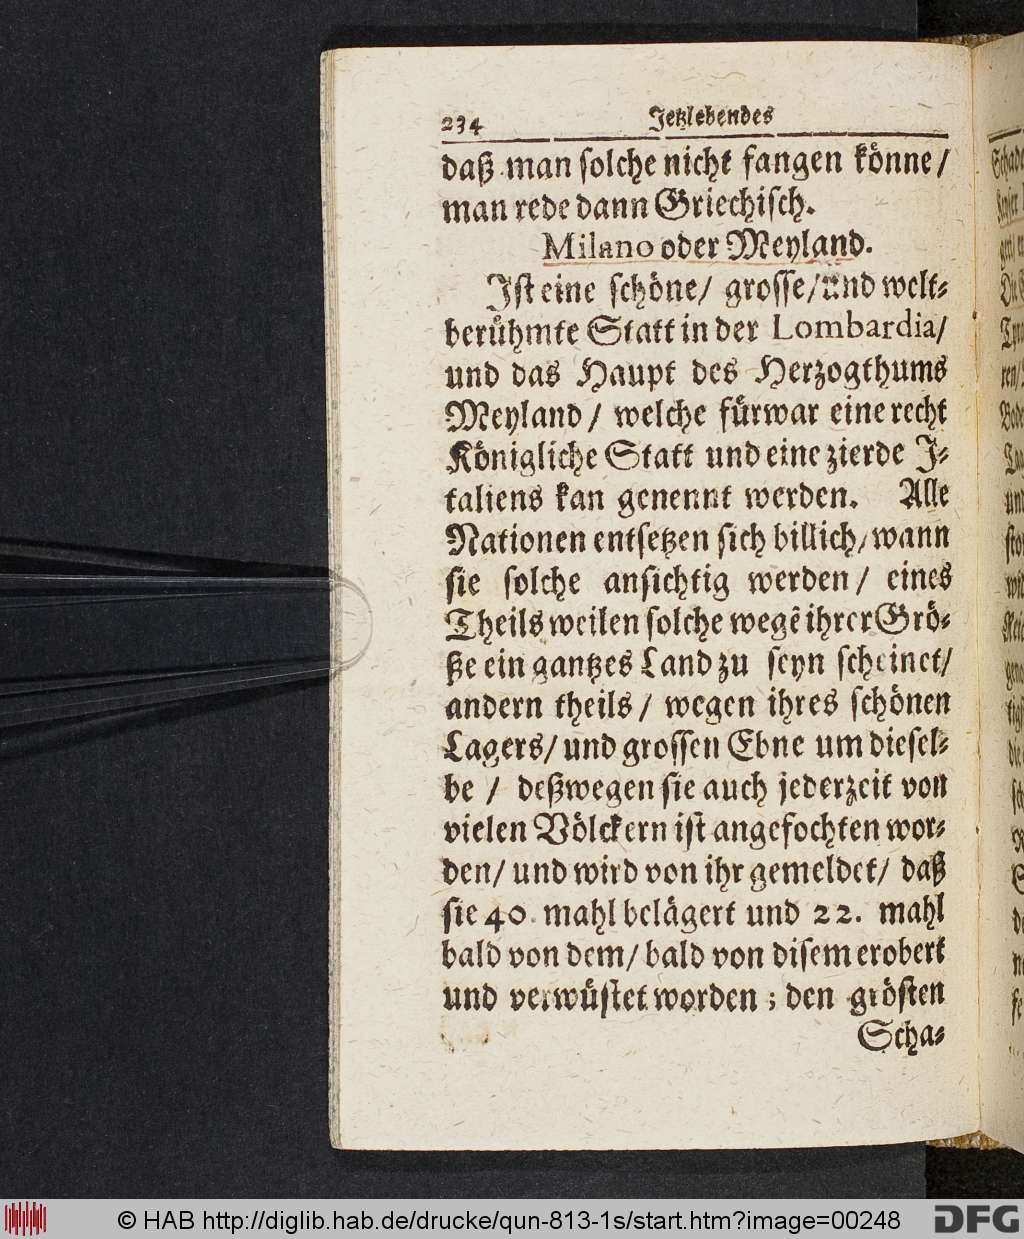 234 Jetzlebendes
daß man solche nicht fangen könne/
man rede dann Griechisch.
Milano oder Meyland.
Ist eine schöne/ grosse/ und welt-
berühmte Statt in der Lombardia/
und das Haupt des Herzogthums
Meyland/ welche fürwar eine recht
Königliche Statt und eine zierde J-
taliens kan genennt werden. Alle
Nationen entsetzen sich billich/ wann
sie solche ansichtig werden/ eines
Theils weilen solche wegẽ ihrer Grö-
ße ein gantzes Land zu seyn scheinet/
andern theils/ wegen ihres schönen
Lagers/ und grossen Ebne um diesel-
be / deßwegen sie auch jederzeit von
vielen Völckern ist angefochten wor-
den/ und wird von ihr gemeldet/ daß
sie 40. mahl belägert und 22. mahl
bald von dem/ bald von disem erobert
und verwüstet worden; den grösten
Scha-
© HAB http://diglib.hab.de/drucke/qun-813-1s/start.htm?image=00248
DFG